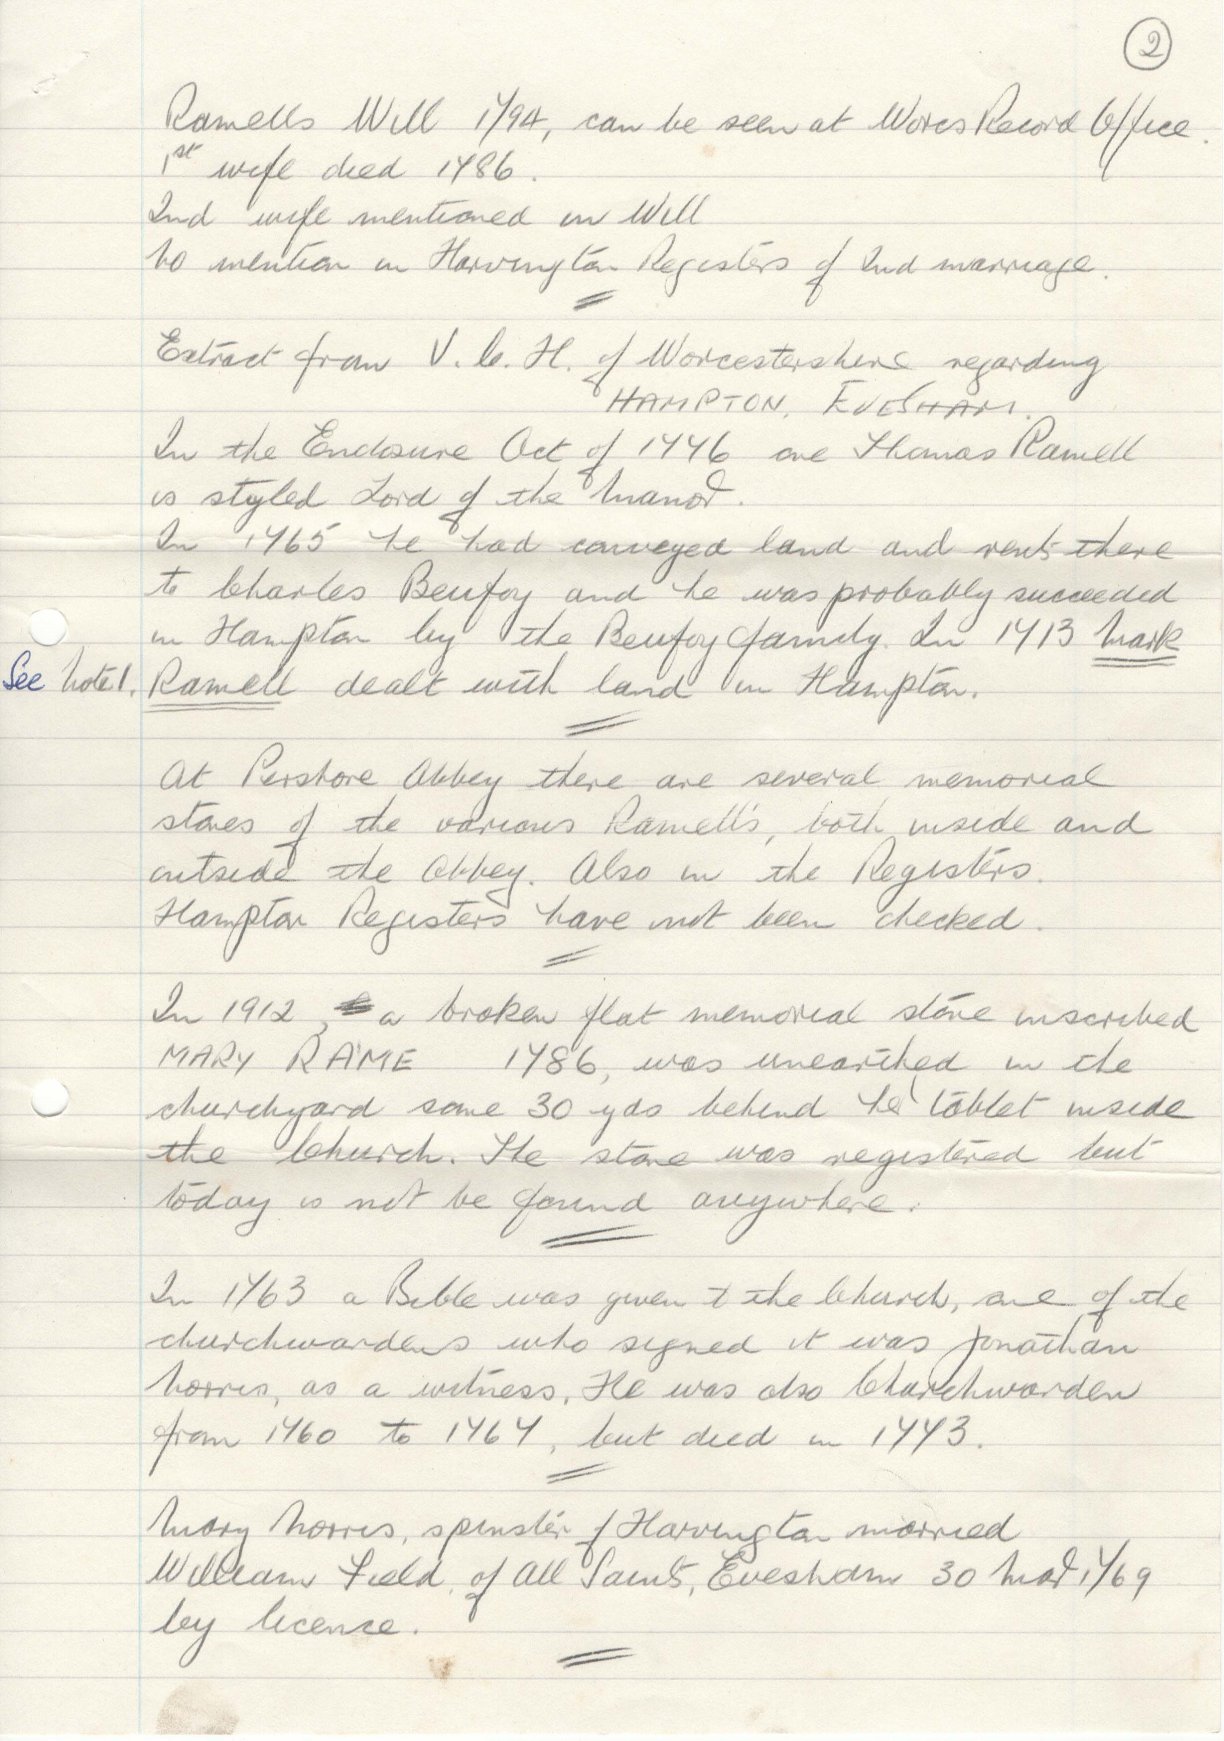 2
Ramells Will 1794, can be seen at Worcs Record Office.
1st wife died 1786.
2nd wife mentioned in Will
No mention in Harvington Registers of 2nd marriage.
Extract from V.C.H. of Worcestershire regarding
HAMPTON, EVESHAM.
In the Enclosure Act of 1776 one Thomas Ramell
is styled Lord of the Manor.
In 1765 he had conveyed land and rents there
to Charles Beufoy and he was probably succeeded
in Hampton by the Beufoy family. In 1713 Mark
See Note 1. Ramell dealt with land in Hampton.
At Pershore Abbey there are several memorial
stones of the various Ramell's, both inside and
outside the Abbey. Also in the Registers.
Hampton Registers have not been checked.
In 1912, a broken flat memorial stone inscribed
MARY RAME 1786, was unearthed in the
churchyard some 30 yds behind he tablet inside
the Church. The stone was registered but
today is not be found anywhere.
In 1763 a Bible was given to the Church, one of the
churchwardens who signed it was Jonathan
Norris, as a witness. He was also Churchwarden
from 1760 to 1767, but died in 1773.
Mary Norris, spinster of Harvington married
William Field, of All Saints, Evesham 30 Mar 1769
by licence.